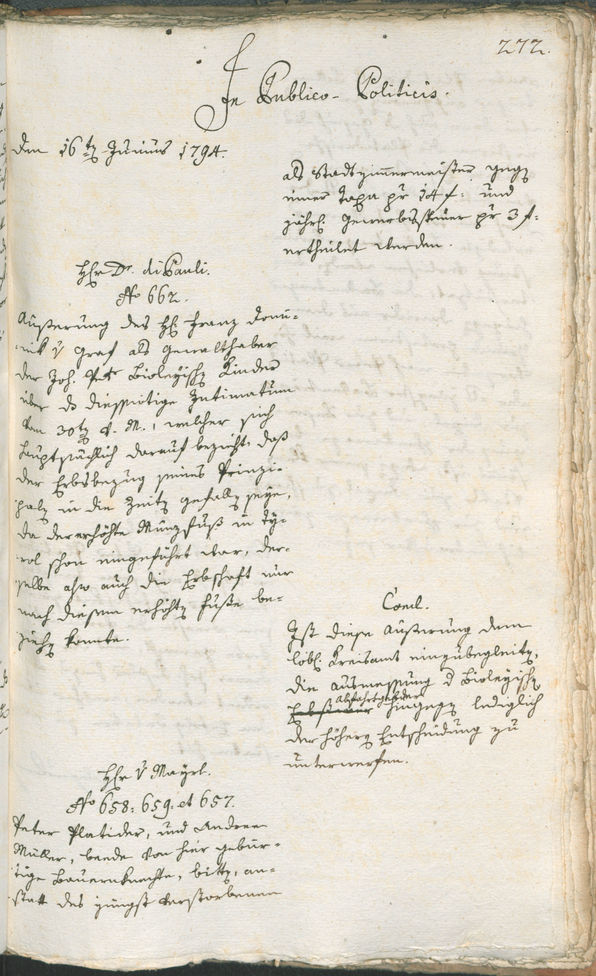 272.
In Publico-Politicis.
den 16tn Junius 1794.
als Stadtzimmermeister gegn
einer Taxa pr 14 f: und
jährl. Gewerbssteuer pr 3 f:
ertheilet werden.
Hr Dr. di Pauli.
No 662.
Äußerung des H: Franz Domi-
nik v Graf als Gewalthaber
der Joh. Bioleyischn Kinder
über das diesseitige Intimatum
vom 30tn v. M., welcher sich
hauptsächlich darauf bezieht, daß
der Erbsbezug seines Prinzi-
paln in die Zeitn gefalln seye,
da der erhöhte Münzfuß in Ty-
rol schon eingeführt war, der-
selbe also auch die Erbschaft nur
nach diesem erhöhtn Fuße be-
ziehn konnte.
Concl.
Ist diese Äußerung dem
löbl. Kreisamt einzubegleitn,
die Ausmessung d Bioleyischn
Abfahrtgelder
Erbsteuer hingegn lediglich
der höhern Entscheidung zu
unterwerfen.
Hr v Mayrl.
No 658: 659: et 657.
Peter Platider, und Andreas
Müller, beede von hier gebür-
tige Bauernknechte, bittn, an-
statt des jüngst verstorbenen